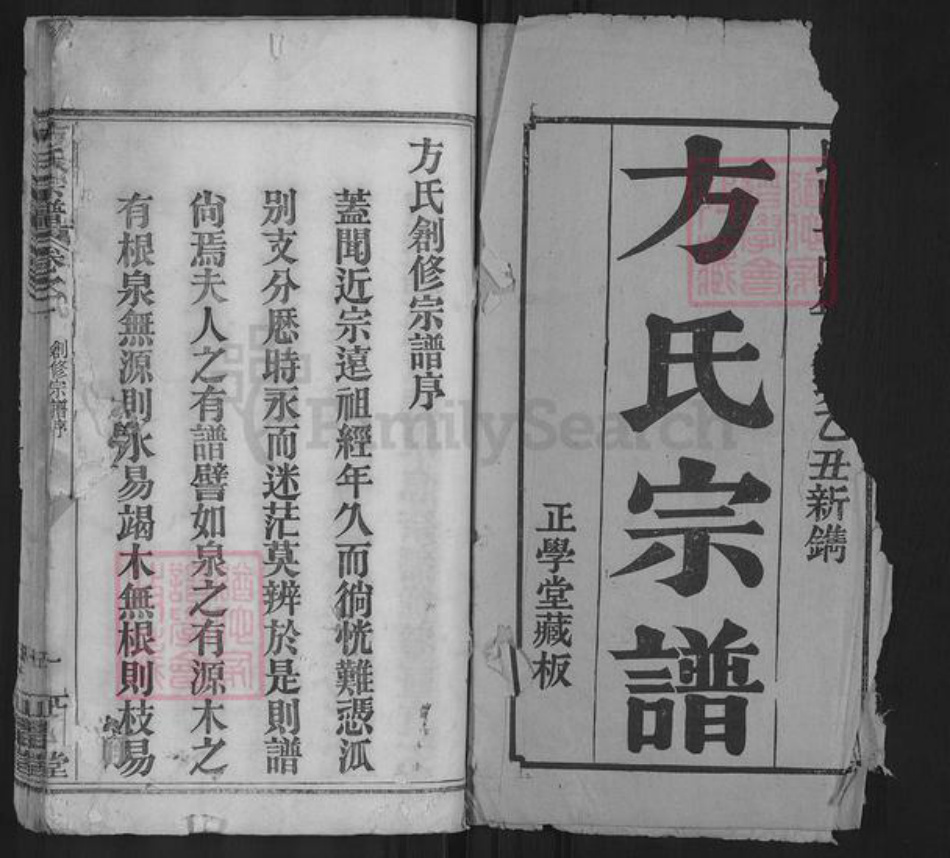 乙丑新鐫
方氏宗譜
正學堂藏板
方氏創修宗譜序
蓋聞近宗遠祖經年久而徜恍難憑泒
别支分厯時永而迷茫莫辨於是則譜
尙焉夫人之有譜譬如泉之有源木之
有根泉無源則水易竭木無根則枝易
方氏宗譜
創修宗譜序
堂
FamilySearch